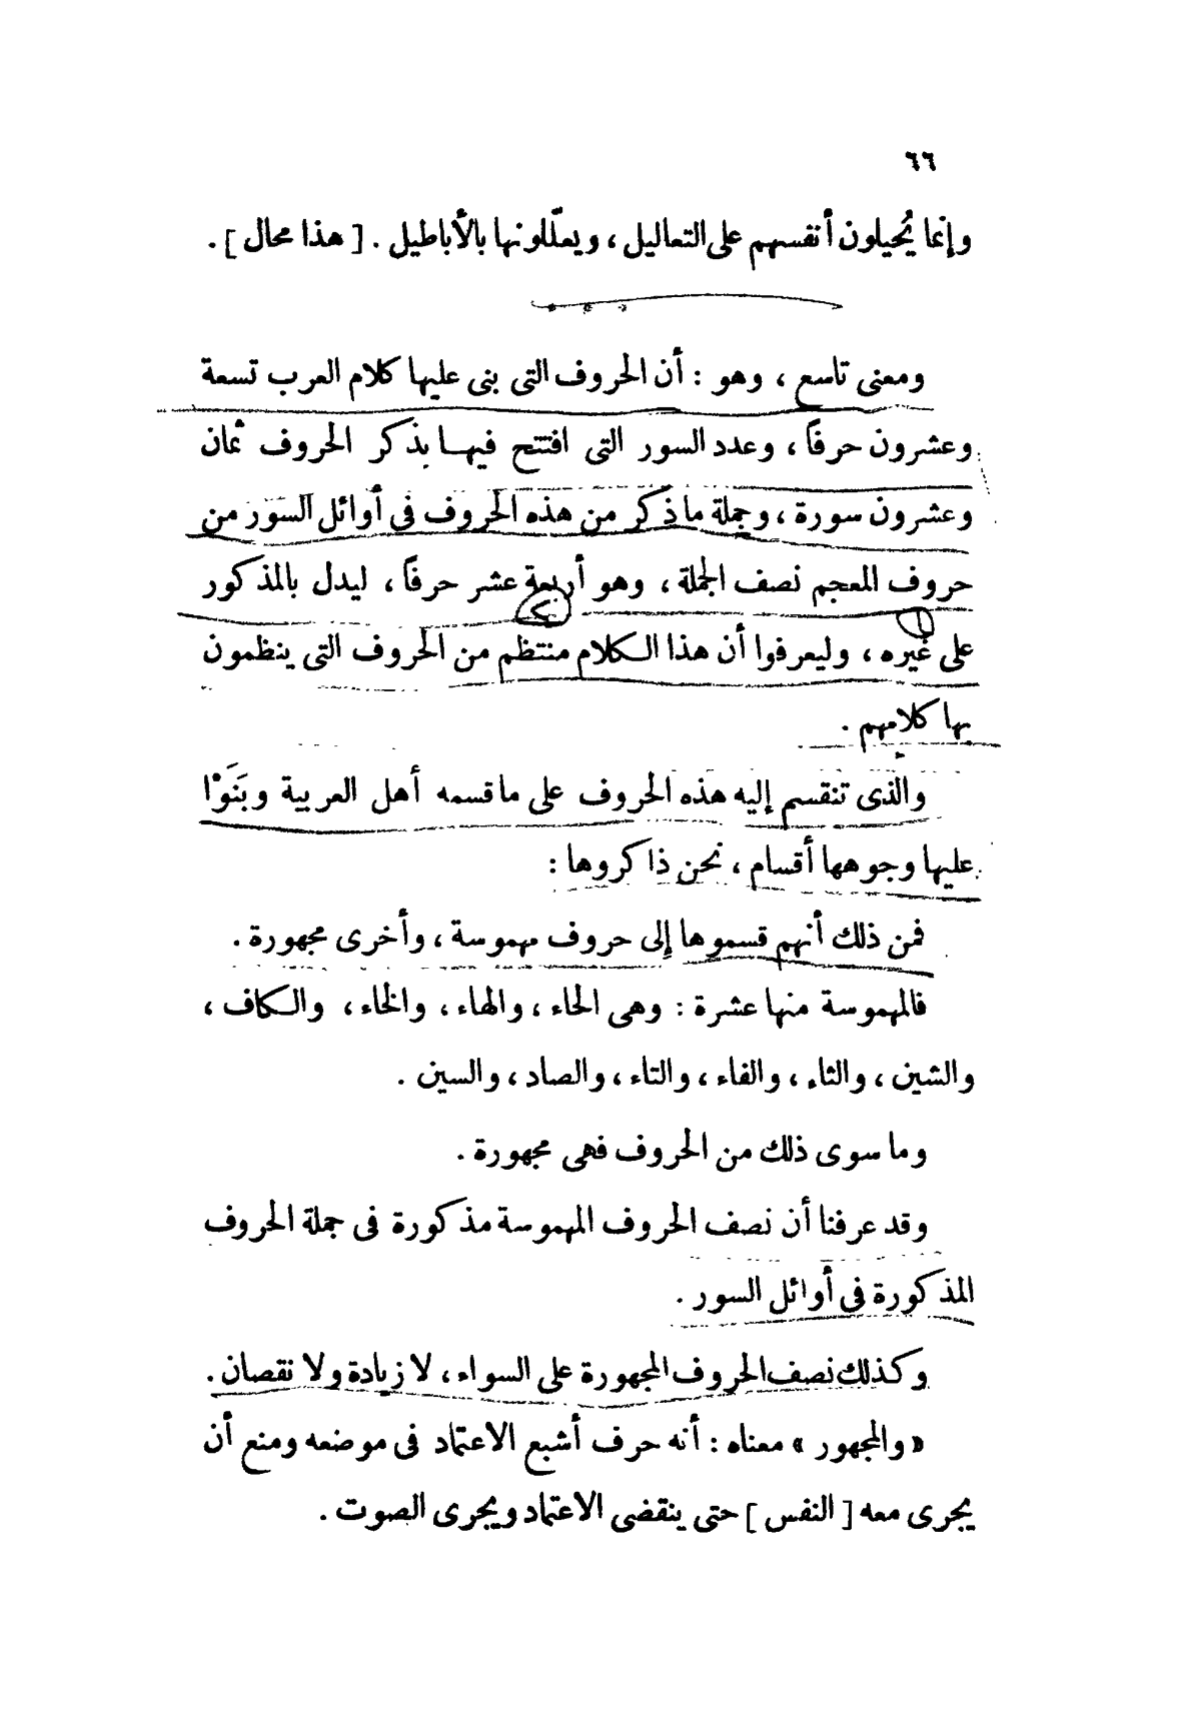 ٦٦
وإنما يُحيلون أنفسهم على التعاليل ، ويعلّلونها بالأباطيل . [ هذا محال ] .
ومعنى تاسع ، وهو : أن الحروف التى بنى عليها كلام العرب تسعة
وعشرون حرفًا ، وعدد السور التى افتتح فيها بذكر الحروف ثمان
وعشرون سورة ، وجملة ما ذكر من هذه الحروف فى أوائل السور من
حروف المعجم نصف الجملة ، وهو أربعة عشر حرفًا ، ليدل بالمذكور
على غيره ، وليعرفوا أن هذا الكلام منتظم من الحروف التى ينظمون
بها كلامهم .
والذى تنقسم إليه هذه الحروف على ما قسمه أهل العربية وبَنَوْا
عليها وجوهها أقسام ، نحن ذاكروها :
فمن ذلك أنهم قسموها إلى حروف مهموسة ، وأخرى مجهورة .
فالمهموسة منها عشرة : وهى الحاء ، والهاء ، والخاء ، والكاف ،
والشين ، والثاء ، والفاء ، والتاء ، والصاد ، والسين .
وما سوى ذلك من الحروف فهى مجهورة .
وقد عرفنا أن نصف الحروف المهموسة مذكورة فى جملة الحروف
المذكورة فى أوائل السور .
وكذلك نصف الحروف المجهورة على السواء ، لا زيادة ولا نقصان .
« والمجهور » معناه : أنه حرف أشبع الاعتماد فى موضعه ومنع أن
يجرى معه [ النفس ] حتى ينقضى الاعتماد ويجرى الصوت .